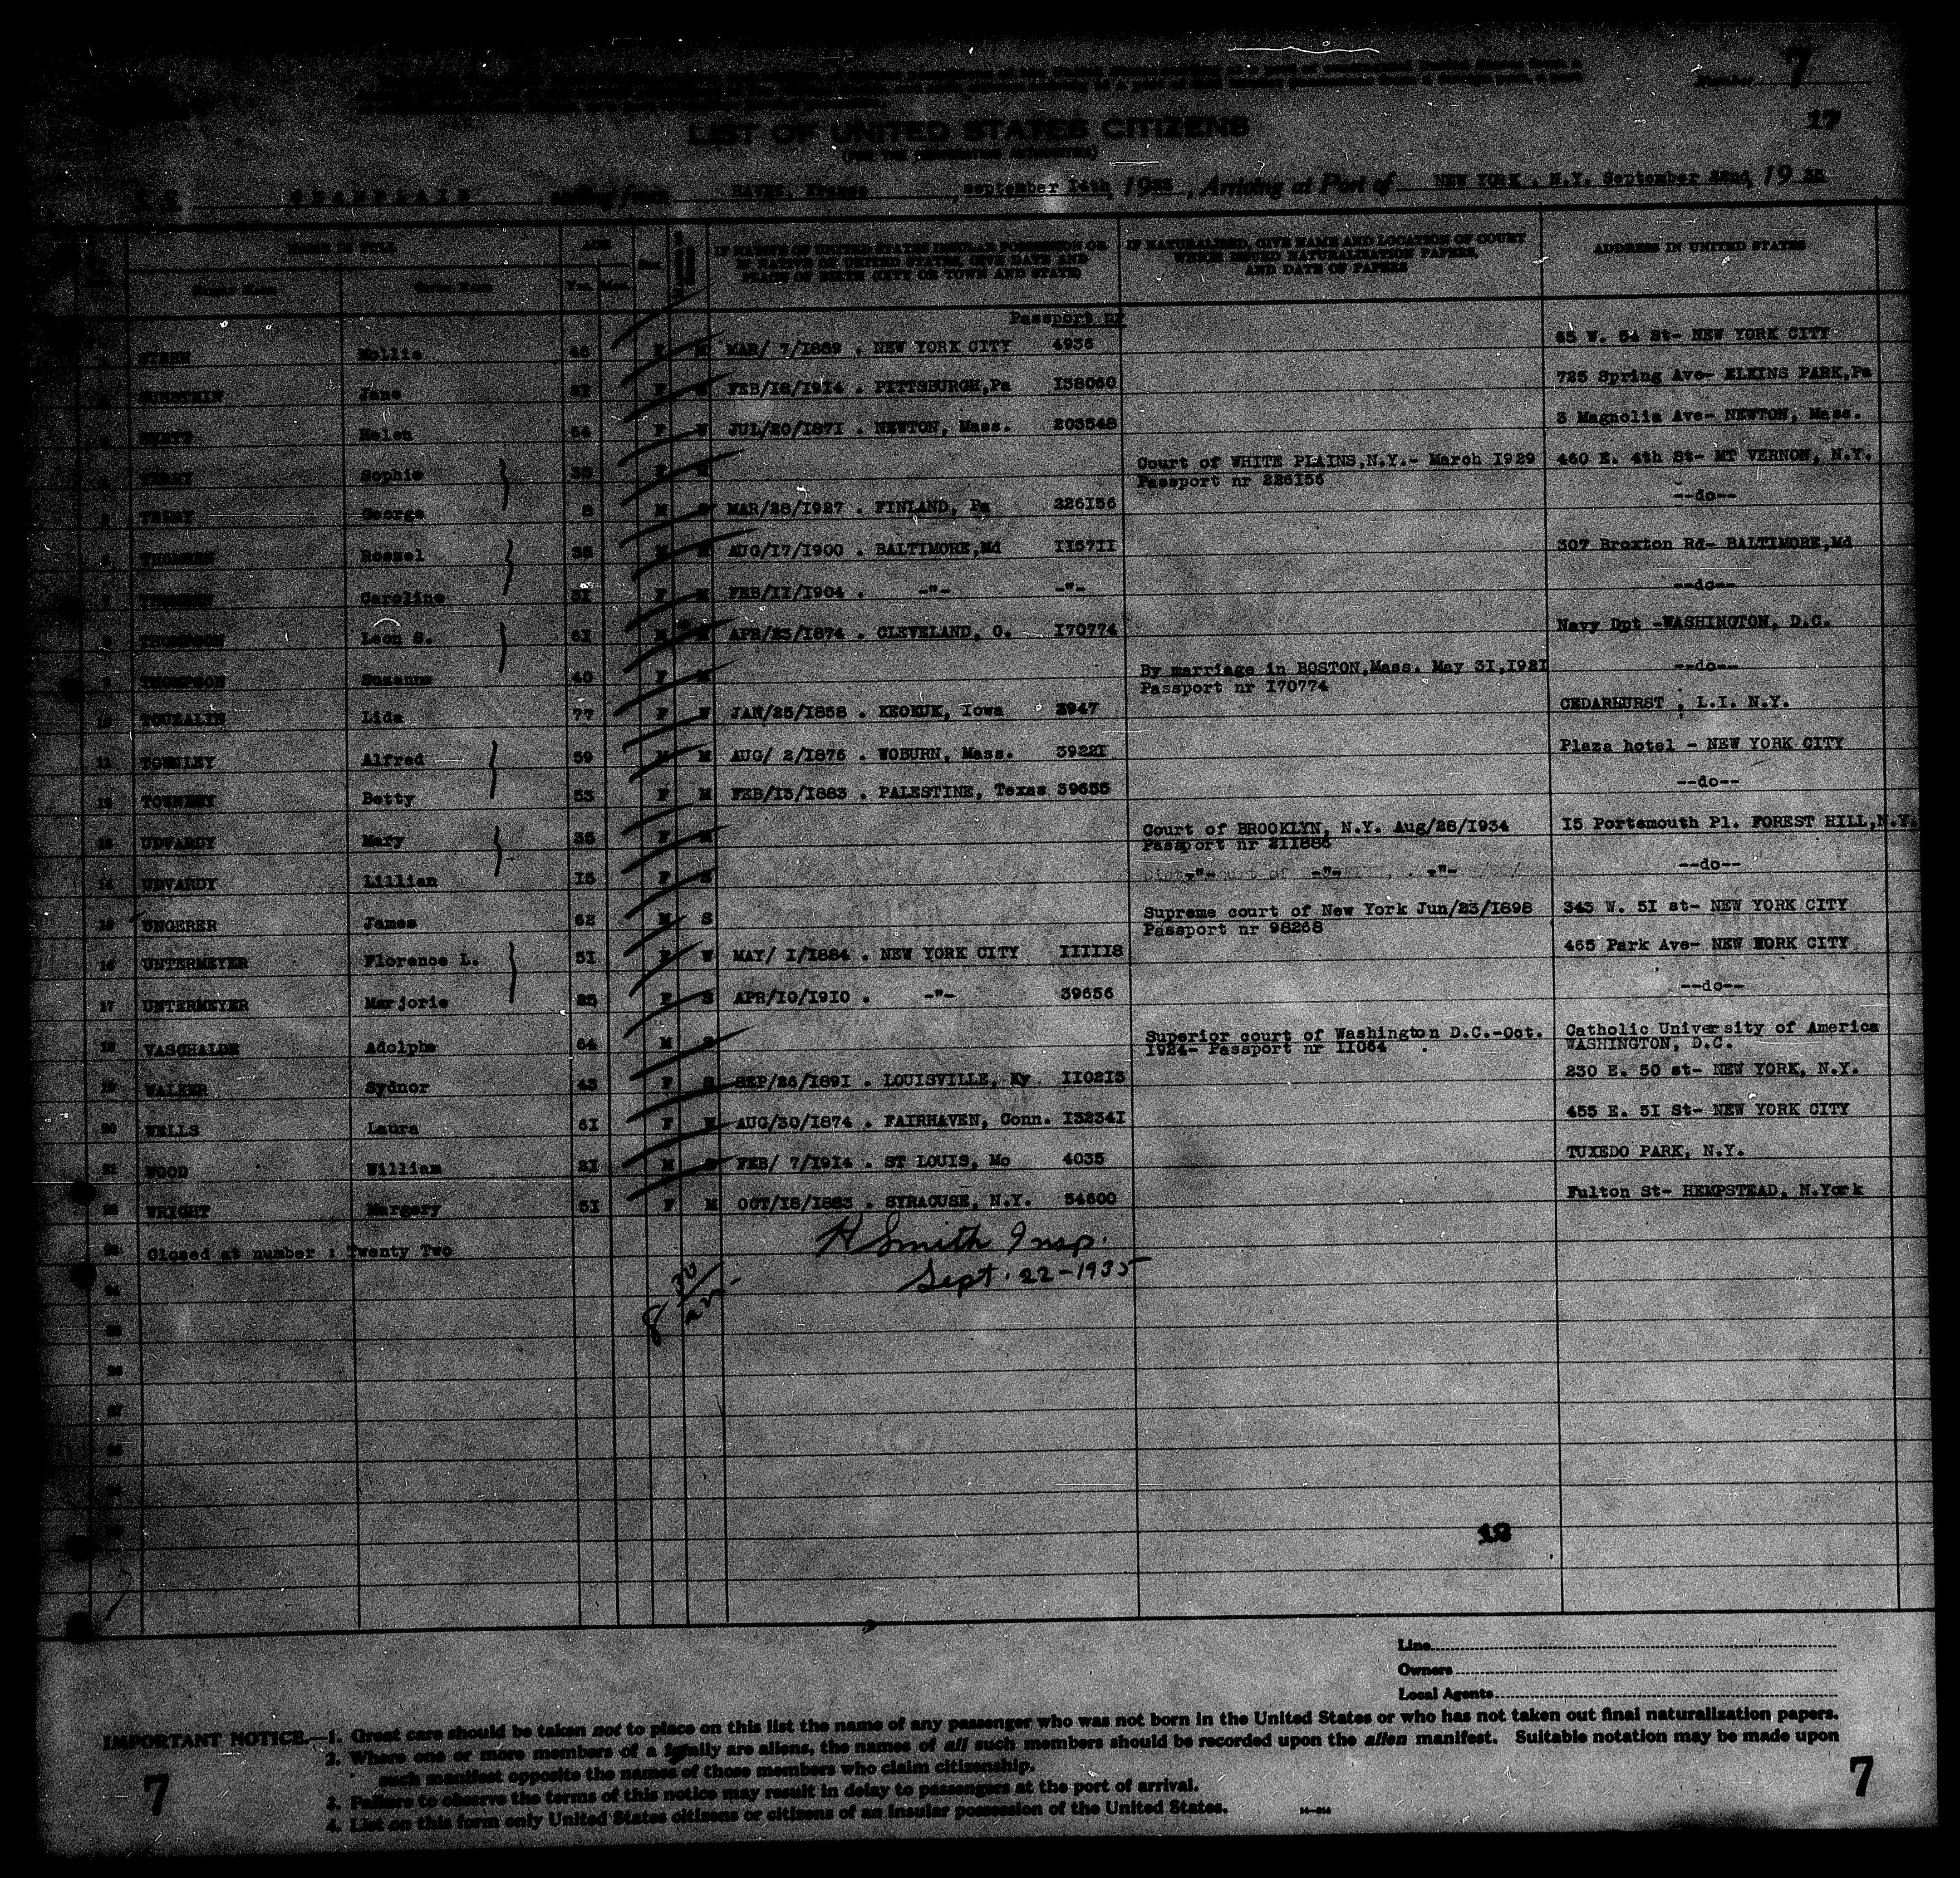 7
17
LIST OF UNITED STATES CITIZENS
(FOR THE IMMIGRATION AUTHORITIES)
S.S. CHAMPLAIN sailing from HAVRE, France, september 14th, 1935, Arriving at Port of NEW YORK. N.Y. September 22nd, 1935
NAME IN FULL AGE
Family Name Given Name Yrs. Mos. Sex
IF NATIVE OF UNITED STATES INSULAR POSSESSION OR
IF NATIVE OF UNITED STATES, GIVE DATE AND
PLACE OF BIRTH (CITY OR TOWN AND STATE)
IF NATURALIZED, GIVE NAME AND LOCATION OF COURT
WHICH ISSUED NATURALIZATION PAPERS,
AND DATE OF PAPERS
ADDRESS IN UNITED STATES
Passport nr
STERN Mollie 46 F MAR/ 7/1889 . NEW YORK CITY 4936 65 W. 54 St- NEW YORK CITY
Jane 21 F S FEB/18/1914 . PITTSBURGH,Pa I38060 725 Spring Ave- ELKINS PARK,Pa
Helen 64 F W JUL/20/187I . NEWTON, Mass. 203548 3 Magnolia Ave- NEWTON, Mass.
Sophie 38 F M Court of WHITE PLAINS,N.Y.- March I929 460 E. 4th St- MT VERNON, N.Y.
Passport nr 226I56
George 8 M S MAR/28/1927 . FINLAND, Pa 226I56 --do--
Roszel 35 M M AUG/I7/I900 . BALTIMORE,Md II57II 307 Broxton Rd- BALTIMORE,Md
Caroline 3I F M FEB/II/I904 . -"- -"- --do--
8 THOMPSON Leon S. 6I M M APR/23/I874 . CLEVELAND, O. I70774 Navy Dpt -WASHINGTON, D.C.
9 THOMPSON Suzanne 40 F M By marriage in BOSTON,Mass. May 3I,I92I --do--
Passport nr I70774
10 TOUZALIN Lida 77 F W JAN/25/I858 . KEOKUK, Iowa 3947 CEDARHURST , L.I. N.Y.
11 TOWNLEY Alfred 59 M M AUG/ 2/I876 . WOBURN, Mass. 3922I Plaza hotel - NEW YORK CITY
12 TOWNLEY Betty 53 F M FEB/I3/I883 . PALESTINE, Texas 39655 --do--
13 UDVARDY Mary 35 F M Court of BROOKLYN, N.Y. Aug/28/I934 I5 Portsmouth Pl. FOREST HILL,N.Y.
Passport nr 2II886
14 UDVARDY Lillian I5 F S -"- -"- -"- --do--
15 UNGERER James 62 M S Supreme court of New York Jun/23/I898 343 W. 5I st- NEW YORK CITY
Passport nr 98268
16 UNTERMEYER Florence L. 5I F W MAY/ I/I884 . NEW YORK CITY IIIII8 465 Park Ave- NEW YORK CITY
17 UNTERMEYER Marjorie 25 F S APR/I0/I9I0 . -"- 39656 --do--
18 VASCHALDE Adolphe 64 M S Superior court of Washington D.C.-Oct. Catholic University of America
I924- Passport nr II064 WASHINGTON, D.C.
19 WALKER Sydnor 43 F S SEP/26/I89I . LOUISVILLE, Ky II02I3 230 E. 50 st- NEW YORK, N.Y.
20 WELLS Laura 6I F W AUG/30/I874 . FAIRHAVEN, Conn. I3234I 455 E. 5I St- NEW YORK CITY
21 WOOD William 2I M S FEB/ 7/I9I4 . ST LOUIS, Mo 4035 TUXEDO PARK, N.Y.
22 WRIGHT Margery 5I F M OCT/I8/I883 . SYRACUSE, N.Y. 54600 Fulton St- HEMPSTEAD, N.York
23 Closed at number : Twenty Two
H Smith Insp.
Sept. 22-1935
8 30/am
24
25
26
27
28
29
12
Line
Owners
Local Agents
IMPORTANT NOTICE.—1. Great care should be taken not to place on this list the name of any passenger who was not born in the United States or who has not taken out final naturalization papers.
2. Where one or more members of a family are aliens, the names of all such members should be recorded upon the alien manifest. Suitable notation may be made upon
such manifest opposite the names of those members who claim citizenship.
3. Failure to observe the terms of this notice may result in delay to passengers at the port of arrival.
4. List on this form only United States citizens or citizens of an insular possession of the United States.
7
7